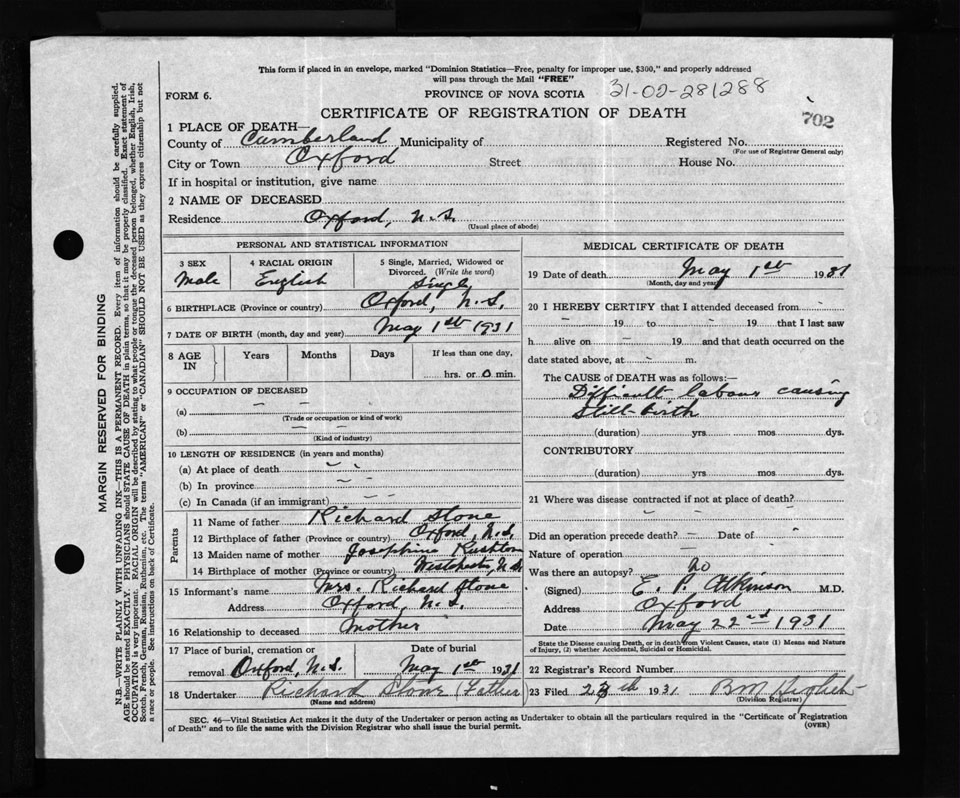 This form if placed in an envelope, marked "Dominion Statistics—Free, penalty for improper use, $300," and properly addressed
will pass through the Mail "FREE"
FORM 6.
PROVINCE OF NOVA SCOTIA
31-02-281288
CERTIFICATE OF REGISTRATION OF DEATH
702
1 PLACE OF DEATH—
County of Cumberland Municipality of Registered No.
(For use of Registrar General only)
City or Town Oxford Street House No.
If in hospital or institution, give name
2 NAME OF DECEASED
Residence Oxford, N.S.
(Usual place of abode)
PERSONAL AND STATISTICAL INFORMATION
3 SEX 4 RACIAL ORIGIN 5 Single, Married, Widowed or
Divorced. (Write the word)
Male English Single
6 BIRTHPLACE (Province or country) Oxford, N.S.
7 DATE OF BIRTH (month, day and year) May 1st 1931
8 AGE IN Years Months Days If less than one day,
hrs. or 0 min.
9 OCCUPATION OF DECEASED
(a) — —
(Trade or occupation or kind of work)
(b) — —
(Kind of industry)
10 LENGTH OF RESIDENCE (in years and months)
(a) At place of death
(b) In province
(c) In Canada (if an immigrant)
Parents
11 Name of father Richard Stone
12 Birthplace of father (Province or country) Oxford, N.S.
13 Maiden name of mother Josephine Rushton
14 Birthplace of mother (Province or country) Westchester, N.S.
15 Informant's name Mrs. Richard Stone
Address Oxford, N.S.
16 Relationship to deceased Mother
17 Place of burial, cremation or Date of burial
removal Oxford, N.S. May 1st 1931
18 Undertaker Richard Stone (Father)
(Name and address)
MEDICAL CERTIFICATE OF DEATH
19 Date of death May 1st 1931
(Month, day and year)
20 I HEREBY CERTIFY that I attended deceased from
19 to 19 that I last saw
h alive on 19 and that death occurred on the
date stated above, at m.
The CAUSE of DEATH was as follows:—
Difficult labour causing
Still-birth
(duration) yrs mos dys.
CONTRIBUTORY
(duration) yrs mos dys.
21 Where was disease contracted if not at place of death?
Did an operation precede death? — Date of
Nature of operation —
Was there an autopsy? no
(Signed) E. P. Atkinson M.D.
Address Oxford
Date May 22nd 1931
State the Disease causing Death, or in death from Violent Causes, state (1) Means and Nature
of Injury, (2) whether Accidental, Suicidal or Homicidal.
22 Registrar's Record Number
23 Filed 1931
(Division Registrar)
SEC. 46—Vital Statistics Act makes it the duty of the Undertaker or person acting as Undertaker to obtain all the particulars required in the "Certificate of Registration
of Death" and to file the same with the Division Registrar who shall issue the burial permit.
(OVER)
MARGIN RESERVED FOR BINDING
N.B.—WRITE PLAINLY WITH UNFADING INK—THIS IS A PERMANENT RECORD. Every item of information should be carefully supplied.
AGE should be stated EXACTLY. PHYSICIANS should STATE CAUSE OF DEATH in plain terms, so that it may be properly classified. Exact statement of
OCCUPATION is very important. RACIAL ORIGIN will be described by stating to what people or tongue the deceased person belonged, whether English, Irish,
Scotch, French, German, Russian, Ruthenian, etc. The terms "AMERICAN" or "CANADIAN" SHOULD NOT BE USED as they express citizenship but not
a race or people. See instructions on back of Certificate.